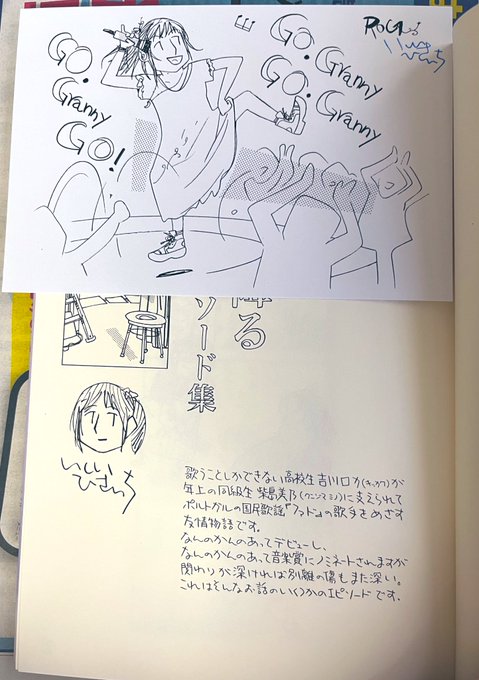 GO・
Granny
GO!
GO・Granny
GO・Granny
ROCA♪
いしい
ひさいち
降る
ソード集
いしい
ひさいち
歌うことしかできない高校生 吉川ロカ(キッカワ)が
年上の同級生 柴島美乃(クニジマミノ)に支えられて
ポルトガルの国民歌謡『ファド』の歌手をめざす
友情物語です。
なんのかんのあってデビューし、
なんのかんのあって音楽賞にノミネートされますが
関わりが深ければ別離の傷もまた深い。
これはそんなお話のいくつかのエピソードです。